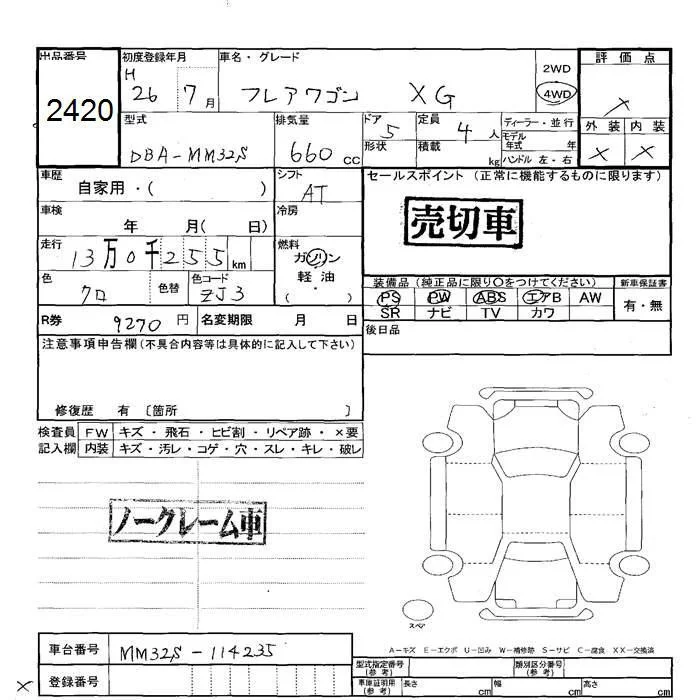 出品番号 初度登録年月 車名・グレード 2WD 評価点
2420 H 26 7月 フレアワゴン XG 4WD ×
型式 排気量 ドア 5 定員 4人 ディーラー・並行 外装 内装
DBA-MM32S 660 cc 形状 積載 kg モデル年式 年 × ×
ハンドル 左・右
車歴 自家用・( ) シフト AT セールスポイント (正常に機能するものに限ります)
車検 年 月( 日) 冷房 売切車
走行 13万0千255km 燃料 ガソリン
軽油
・( )
色 クロ 色替 色コード ZJ3
装備品 (純正品に限り○をつけてください) 新車保証書
PS PW ABS エアB AW 有・無
SR ナビ TV カワ
R券 9270 円 名変期限 月 日 後日品
注意事項申告欄(不具合内容等は具体的に記入して下さい)
修復歴 有 〔箇所 〕
検査員 FW キズ・飛石・ヒビ割・リペア跡・×要
記入欄 内装 キズ・汚レ・コゲ・穴・スレ・キレ・破レ
ノークレーム車
スペア
A-キズ E-エクボ U-凹み W-補修跡 S-サビ C-腐食 XX-交換済
車台番号 MM32S-114235
型式指定番号(参考) 類別区分番号(参考)
× 登録番号
車庫証明用(参考) 長さ cm 幅 cm 高さ cm